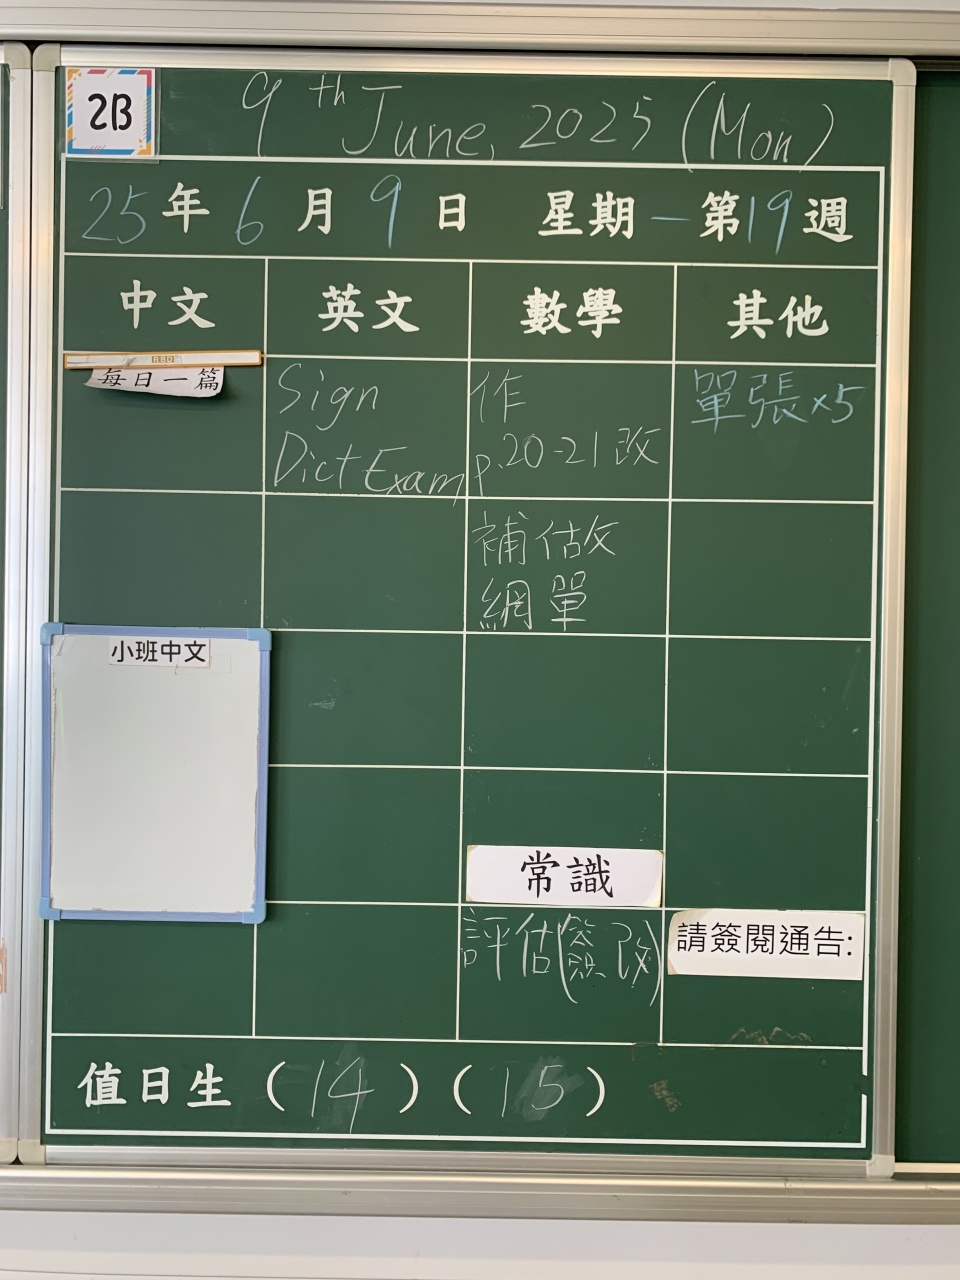 2B
9th June, 2025 (Mon)
25年6月9日 星期一 第19週
中文 英文 數學 其他
RBD
每日一篇
Sign
Dict Exam
作
P.20-21改
單張×5
補估改
網單
小班中文
常識
評估(簽改)
請簽閱通告:
值日生(14)(15)